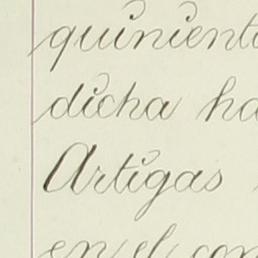 quinient
dicha ha
Artigas
en el con